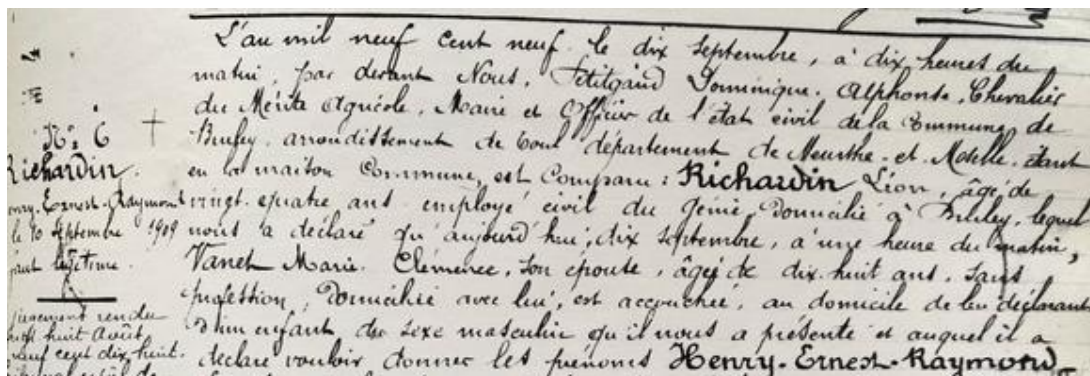 N: 6
Richardin
Henry-Ernest-Raymond
le 10 Septembre 1909
enfant légitime.
jugement rendu
huit Août
neuf cent dix-huit.
L'an mil neuf cent neuf le dix Septembre, à dix heures du
matin, par devant Nous, Petitgand Dominique, Alphonse, Chevalier
du Mérite Agricole, Maire et Officier de l'état civil de la Commune de
Bruley, arrondissement de Toul département de Meurthe-et-Moselle, étant
en la maison Commune, est Comparu : Richardin Léon, âgé de
vingt-quatre ans employé civil du Génie, Domicilié à Bruley, lequel
nous a déclaré qu'aujourd'hui, dix Septembre, à une heure du matin,
Vanet Marie Clémence, son épouse, âgée de dix-huit ans, sans
profession, Domiciliée avec lui, est accouchée, au domicile de lui déclarant
D'un enfant du sexe masculin qu'il nous a présenté et auquel il a
déclaré vouloir donner les prénoms Henry-Ernest-Raymond